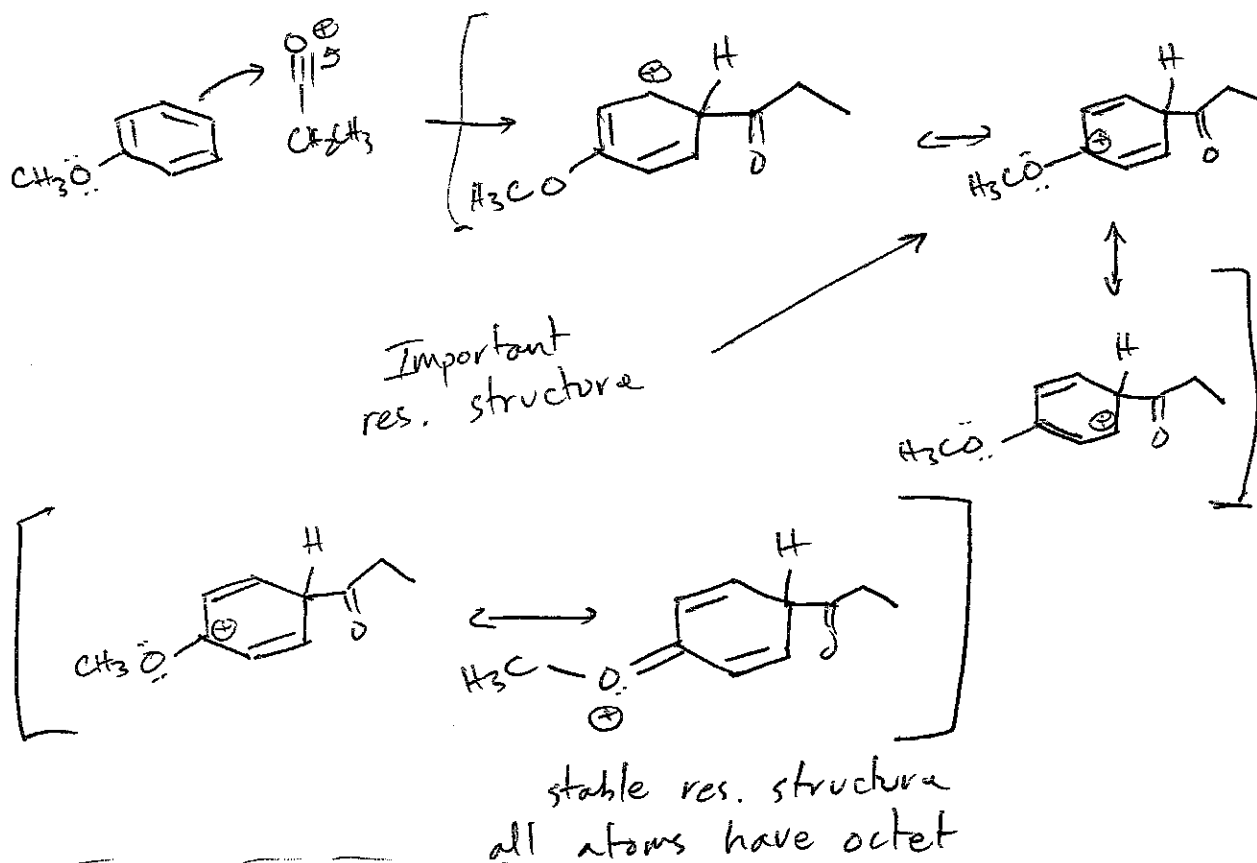 O⊕
CH₃Ö
CH₂CH₃
⊕ H
O
H₃CO
H
⊕
O
H₃CÖ
Important
res. structure
H
⊕
O
H₃CÖ
H
⊕
O
CH₃Ö
H
O
H₃C
O
⊕
stable res. structure
all atoms have octet